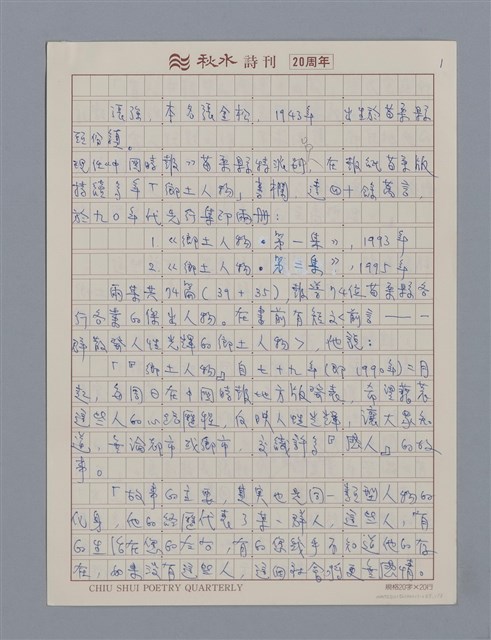 秋水 詩刊 20周年
1
張強,本名張金松,1943年 出生於苗栗縣
頭份鎮。
現任《中國時報》苗栗縣特派,在報紙苗栗版
持續多年「鄉土人物」專欄,達四十餘萬言,
於九〇年代先行集印兩冊:
1.《鄉土人物・第一集》,1993年
2.《鄉土人物・第二集》,1995年
兩集共74篇(39+35),報導74位苗栗縣各
行各業的傑出人物。在書前有短文<前言——一
群散發人性光輝的鄉土人物>,他說:
「『鄉土人物』自七十九年(即1990年)二月
起,每週日在中國時報地方版發表,希望藉著
這些人的心路歷程,反映人性光輝,讓大家知
道,無論都市或鄉市,交織許多『感人』的故
事。
「故事的主要,其實也是同一類型人物的
化身,他的經歷代表了某一群人,這些人,有
的生活在您的左右,有的您幾乎不知道他的存
在,如果沒有這些人,這個社會將更無感情。
CHIU SHUI POETRY QUARTERLY
規格20字×20行